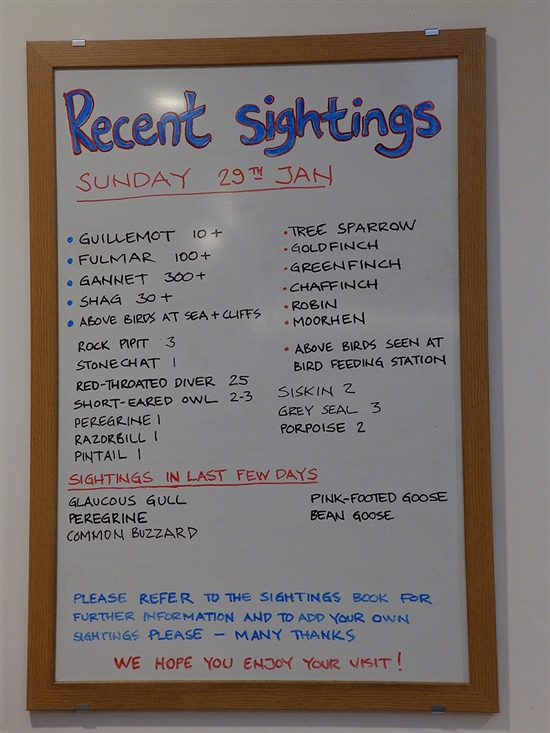 Recent sightings
SUNDAY 29TH JAN
• GUILLEMOT 10+
• FULMAR 100+
• GANNET 300+
• SHAG 30+
• ABOVE BIRDS AT SEA + CLIFFS
ROCK PIPIT 3
STONECHAT 1
RED-THROATED DIVER 25
SHORT-EARED OWL 2-3
PEREGRINE 1
RAZORBILL 1
PINTAIL 1
• TREE SPARROW
• GOLDFINCH
• GREENFINCH
• CHAFFINCH
• ROBIN
• MOORHEN
• ABOVE BIRDS SEEN AT
BIRD FEEDING STATION
SISKIN 2
GREY SEAL 3
PORPOISE 2
SIGHTINGS IN LAST FEW DAYS
GLAUCOUS GULL
PEREGRINE
COMMON BUZZARD
PINK-FOOTED GOOSE
BEAN GOOSE
PLEASE REFER TO THE SIGHTINGS BOOK FOR
FURTHER INFORMATION AND TO ADD YOUR OWN
SIGHTINGS PLEASE – MANY THANKS
WE HOPE YOU ENJOY YOUR VISIT!